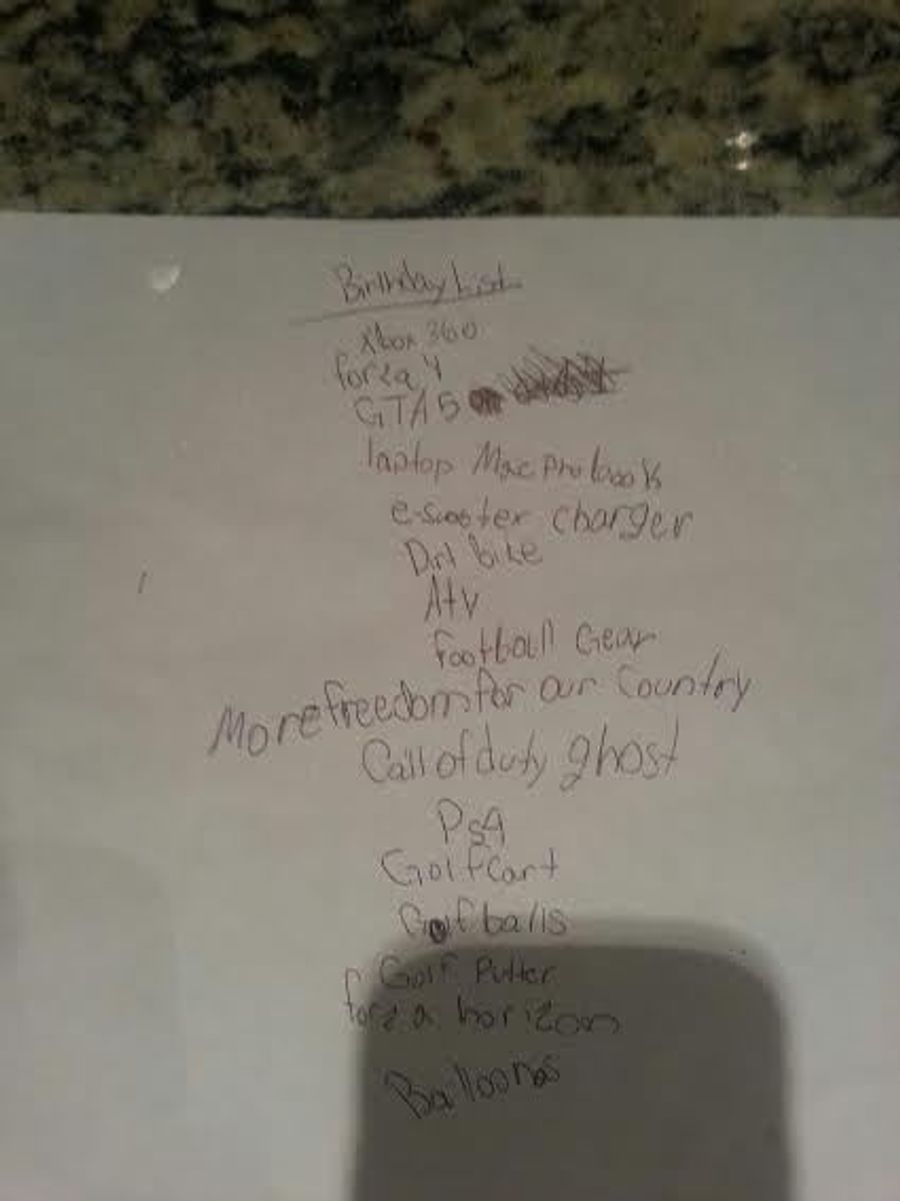 Birthday List
Xbox 360
forza 4
GTA 5
laptop Mac pro book
e-scooter charger
Dirt bike
Atv
football Gear
More freedom for our Country
Call of duty ghost
Ps4
Golf Cart
Golf balls
Golf Putter
forza horizon
Balloonas